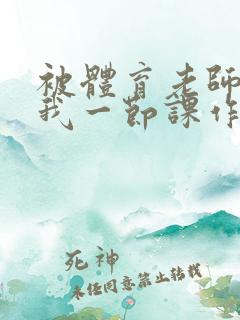 被體育老師
我一節課作
死神
未經同意禁止轉載